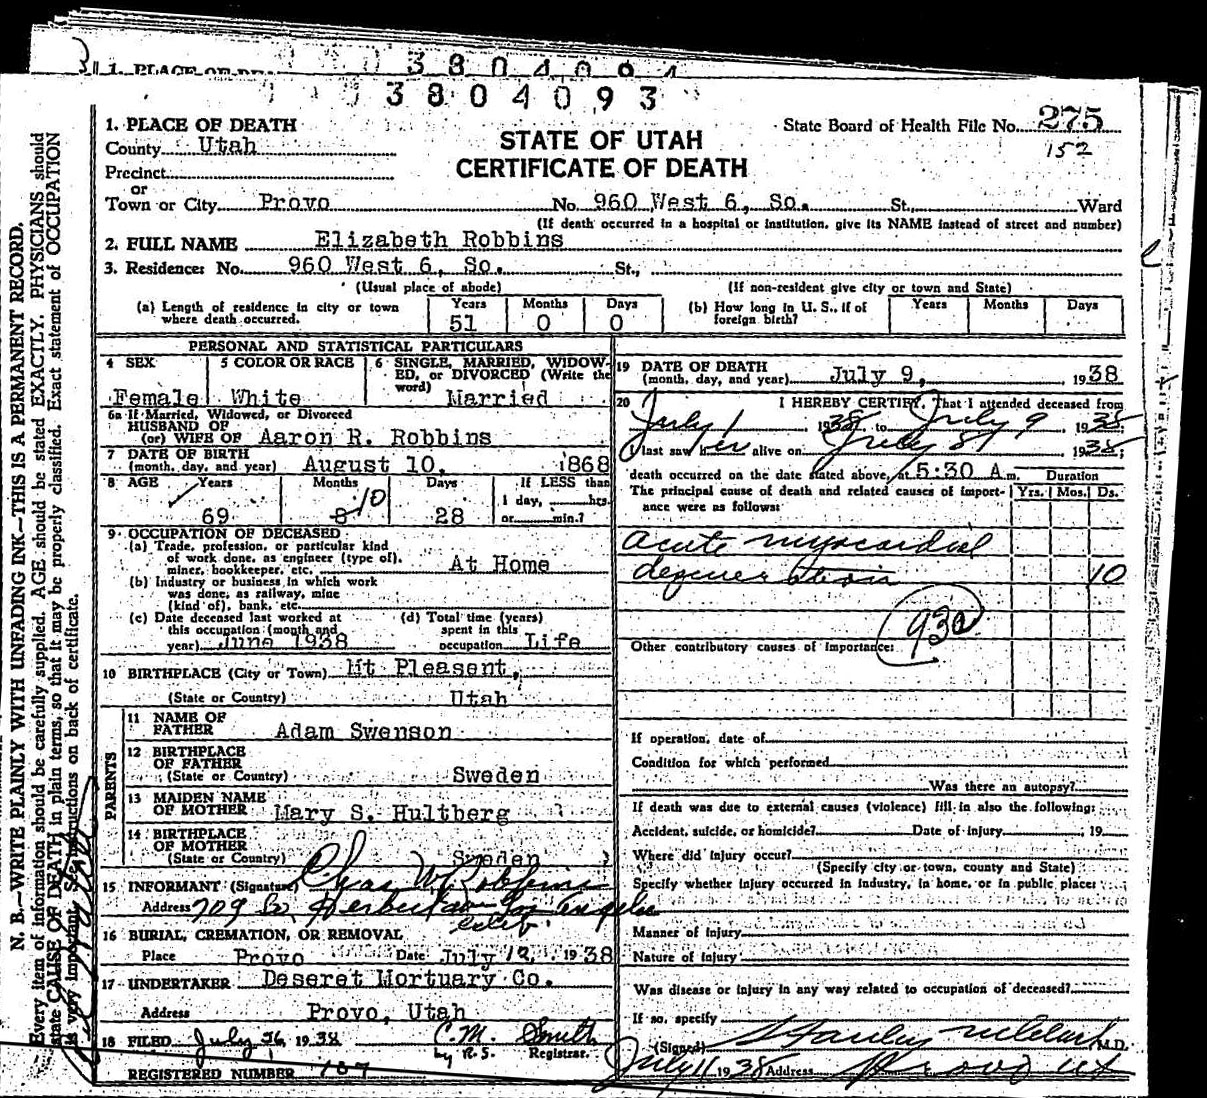 1. PLACE OF DEATH
3804094
3804093
1. PLACE OF DEATH
County Utah
Precinct
or
Town or City Provo No. 960 West 6, So. St., Ward
STATE OF UTAH
CERTIFICATE OF DEATH
State Board of Health File No. 275
152
(If death occurred in a hospital or institution, give its NAME instead of street and number)
2. FULL NAME Elizabeth Robbins
3. Residence: No. 960 West 6, So. St.,
(Usual place of abode) (If non-resident give city or town and State)
(a) Length of residence in city or town where death occurred. Years 51 Months 0 Days 0
(b) How long in U. S., if of foreign birth? Years Months Days
PERSONAL AND STATISTICAL PARTICULARS
4 SEX Female
5 COLOR OR RACE White
6 SINGLE, MARRIED, WIDOWED, or DIVORCED (Write the word) Married
6a If Married, Widowed, or Divorced
HUSBAND OF
(or) WIFE OF Aaron R. Robbins
7 DATE OF BIRTH
(month, day, and year) August 10, 1868
8 AGE Years 69 Months 8 10 Days 28
If LESS than
1 day, hrs.
or min.?
9 OCCUPATION OF DECEASED
(a) Trade, profession, or particular kind
of work done, as engineer (type of).
miner, bookkeeper, etc. At Home
(b) Industry or business in which work
was done, as railway, mine
(kind of), bank, etc.
(c) Date deceased last worked at
this occupation (month and
year) June 1938
(d) Total time (years)
spent in this
occupation Life
10 BIRTHPLACE (City or Town) Mt Pleasent,
(State or Country) Utah
PARENTS
11 NAME OF
FATHER Adam Swenson
12 BIRTHPLACE
OF FATHER
(State or Country) Sweden
13 MAIDEN NAME
OF MOTHER Mary S. Hultberg
14 BIRTHPLACE
OF MOTHER
(State or Country) Sweden
15 INFORMANT (Signature) Chas W. Robbins
Address 709 So Los Angeles
Calif.
16 BURIAL, CREMATION, OR REMOVAL
Place Provo Date July 12, 1938
17 UNDERTAKER Deseret Mortuary Co.
Address Provo, Utah
18 FILED July 26, 1938 C.M. Smith
by R.S. Registrar.
REGISTERED NUMBER 167
19 DATE OF DEATH
(month, day, and year) July 9, 1938
20 I HEREBY CERTIFY, That I attended deceased from
July 1 1938 to July 9 1938;
I last saw her alive on July 8 1938;
death occurred on the date stated above, at 5:30 A m. Duration
The principal cause of death and related causes of importance were as follows: Yrs. Mos. Ds.
acute myocardial
degeneration 10
93a
Other contributory causes of importance:
If operation, date of
Condition for which performed
Was there an autopsy?
If death was due to external causes (violence) fill in also the following:
Accident, suicide, or homicide? Date of injury , 19
Where did injury occur?
(Specify city or town, county and State)
Specify whether injury occurred in industry, in home, or in public place:
Manner of injury
Nature of injury
Was disease or injury in any way related to occupation of deceased?
If so, specify
(Signed) Stanley M.D.
July 11 1938 Address Provo Ut
N. B.—WRITE PLAINLY WITH UNFADING INK—THIS IS A PERMANENT RECORD.
Every item of information should be carefully supplied. AGE should be stated EXACTLY. PHYSICIANS should
state CAUSE OF DEATH in plain terms, so that it may be properly classified. Exact statement of OCCUPATION
is very important. See instructions on back of certificate.